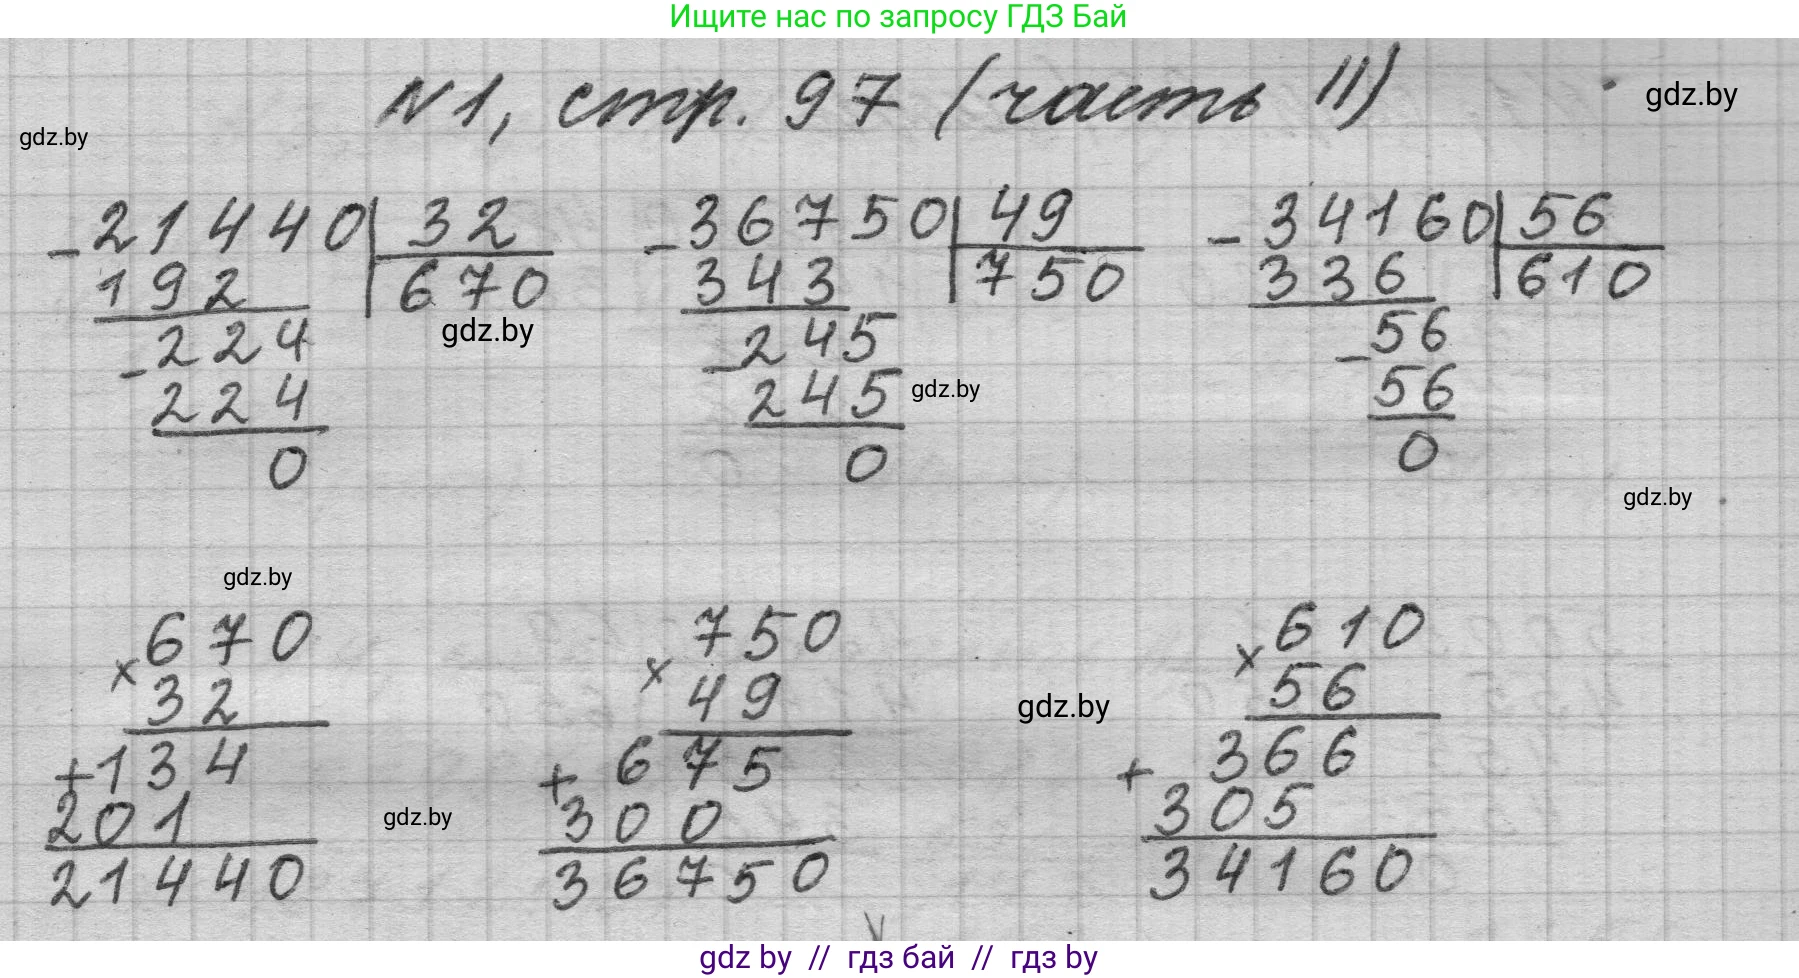 Ищите нас по запросу ГДЗ Бай
N1, стр. 97 (часть II)
gdz.by
gdz.by
- 21440 | 32   - 36750 | 49   - 34160 | 56
192   670   343   750   336   610
- 224   - 245   - 56
gdz.by
224   245   56
gdz.by
0   0   0
gdz.by
gdz.by
670   750   610
× 32   × 49   × 56
gdz.by
+ 134   + 675   + 366
201   300   305
gdz.by
21440   36750   34160
gdz by // гдз бай // гдз by